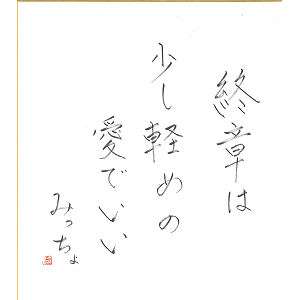 終章は
少し軽めの
愛でいい
みっちょ